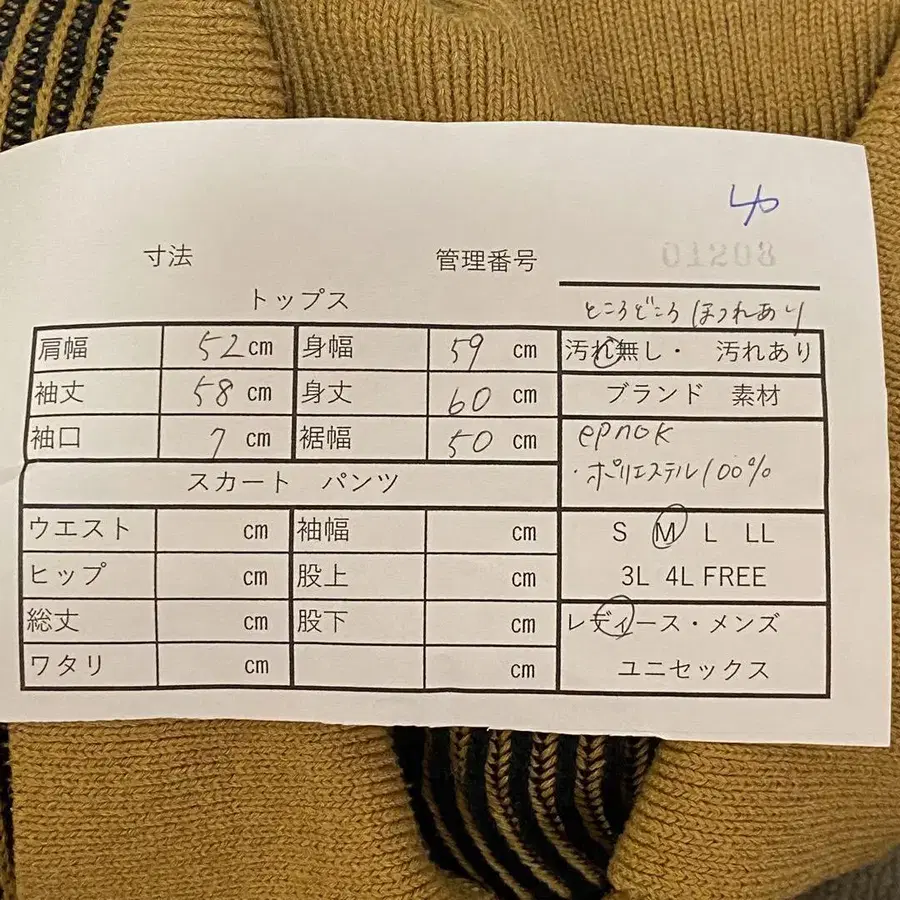 寸法 管理番号 01203
トップス
ところどころほつれあり
肩幅 52 cm 身幅 59 cm 汚れ無し・ 汚れあり
袖丈 58 cm 身丈 60 cm ブランド 素材
袖口 7 cm 裾幅 50 cm epnok
スカート パンツ ・ポリエステル100%
ウエスト cm 袖幅 cm S M L LL
ヒップ cm 股上 cm 3L 4L FREE
総丈 cm 股下 cm レディース・メンズ
ワタリ cm cm ユニセックス